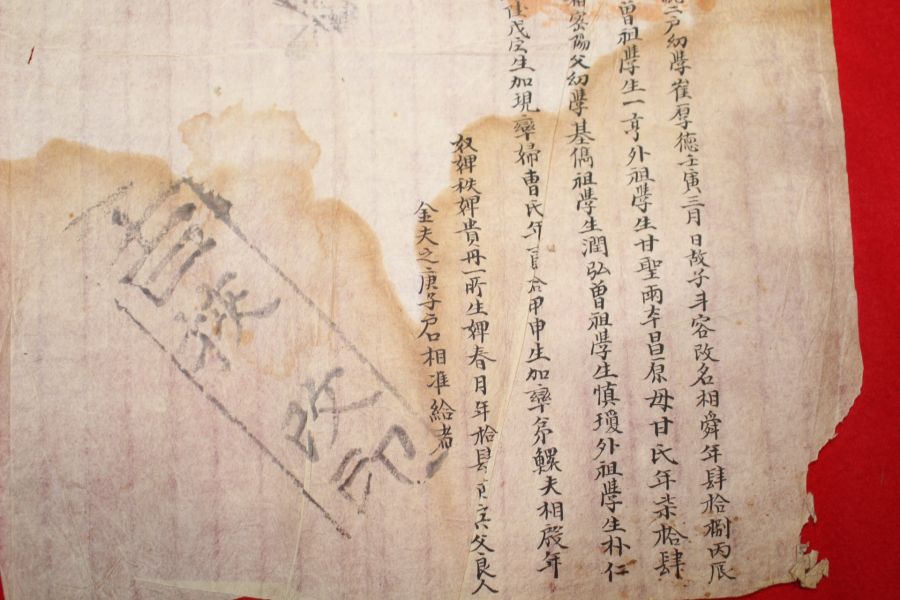 戶幼學崔厚德壬寅三月日故子斗容改名相舜年肆拾捌丙辰
曾祖學生一亨外祖學生甘聖雨本昌原母甘氏年柒拾肆
密陽父幼學基儁祖學生潤弘曾祖學生慎瓊外祖學生朴仁
戊寅生加現率婦曺氏年貳拾甲申生加率弟鰥夫相殷年
奴婢秩婢貴丹一所生婢春月年拾良人
金夫之庚子戶口相准給者
改印